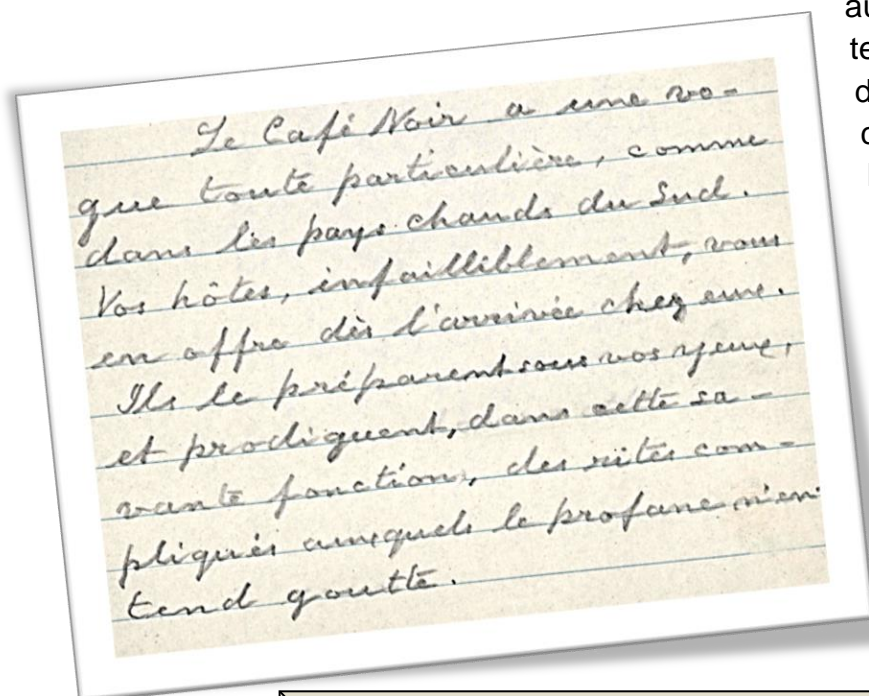 Le Café Noir a une vo-
gue toute particulière, comme
dans les pays chauds du Sud.
Vos hôtes, infailliblement, vous
en offre dès l'arrivée chez eux.
Ils le préparent sous vos yeux,
et prodiguent, dans cette sa-
vante fonction, des rites com-
pliqués auxquels le profane n'en-
tend goutte.
au
te
d